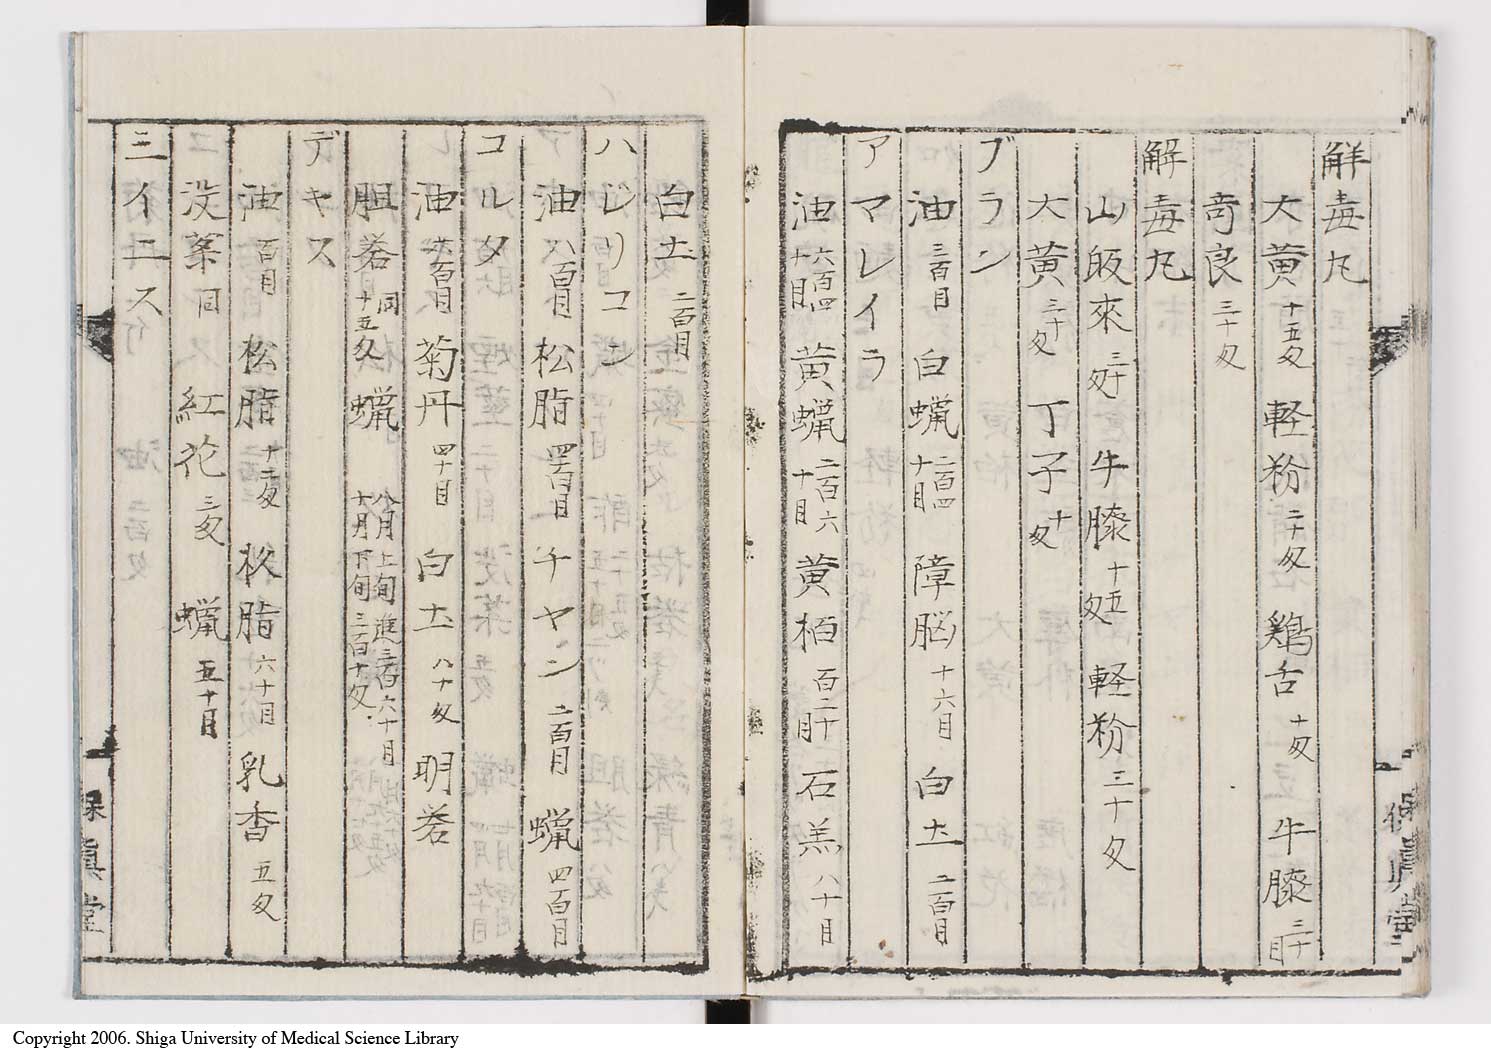 解毒丸
大黄 十五匁 軽粉 二十匁 鶏舌 十匁 牛膝 三十目
奇良 三十匁
解毒丸
山皈來 三十匁 牛膝 十五匁 軽粉 三十匁
大黄 三十匁 丁子 十匁
ブラン
油 三百目 白蝋 二百四十目 障脳 十六目 白土 二百目
アマレイラ
油 六百四十目 黄蝋 二百六十目 黄栢 百二十目 石羔 八十目
白土 二百目
ハシリコン
油 八百目 松脂 四百目 チヤン 二百目 蝋 四百目
コルタ
油 六百目 菊丹 四十目 白土 八十匁 明礬
胆礬 同十五匁 蝋 八月上旬進三百六十目 十月下旬三百十匁
デキス
油 百目 松脂 十二匁 松脂 六十目 乳香 五匁
没薬 同 紅花 三匁 蝋 五十目
ミイニス
保眞堂
Copyright 2006. Shiga University of Medical Science Library